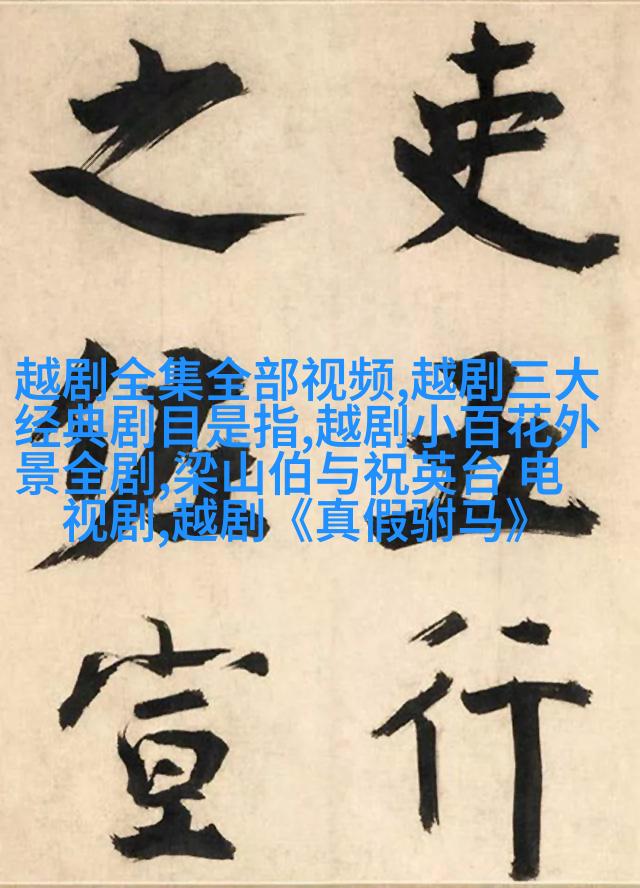 越剧全集全部视频,越剧三大
经典剧目是指,越剧小百花外
景全剧,梁山伯与祝英台 电
视剧,越剧《真假驸马》
吏行
之宣